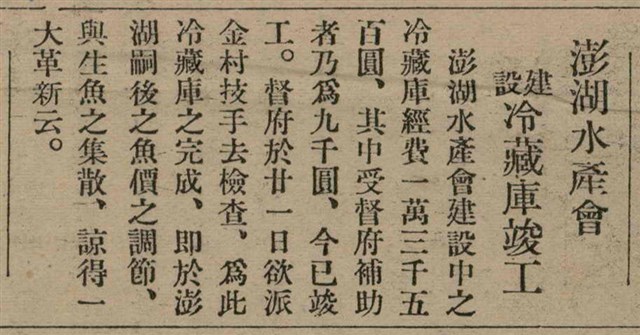 澎湖水產會
建設冷藏庫竣工
澎湖水產會建設中之
冷藏庫經費一萬三千五
百圓、其中受督府補助
者乃爲九千圓、今已竣
工。督府於廿一日欲派
金村技手去檢查、爲此
冷藏庫之完成、卽於澎
湖嗣後之魚價之調節、
與生魚之集散、諒得一
大革新云。